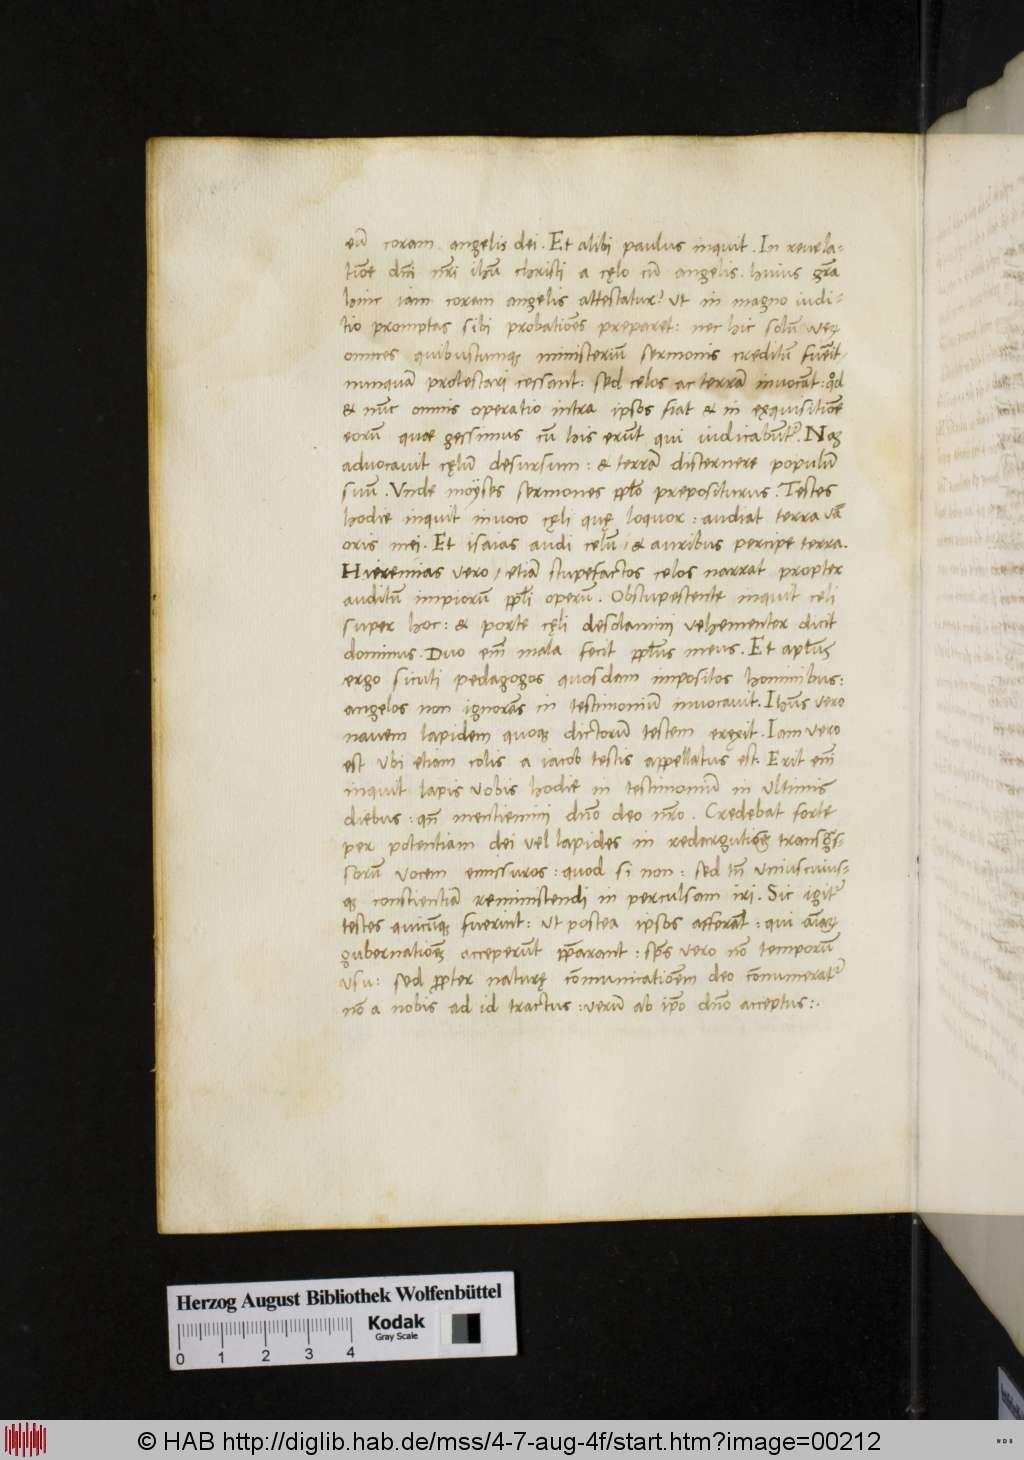 eū coram angelis dei. Et alibi paulus inquit. In reuela-
tiōe dn̄i nr̄i ihū christi a cęlo cū angelis. huius gr̄a
hinc iam coram angelis attestatur: ut in magno iudi-
tio promptas sibi probatiōes preparet: nec hic solū
omnes quibuscumq; ministeriū sermonis creditū fuerit
nunquā protestari cessant: sed cęlos ac terrā invocāt: qd̄
& nūc omnis operatio intra ipsos fiat & in exquisitiōe
eorū quae gessimus cū his erūt qui iudicabunt̄. Naq;
advocavit cęlū desursum: & terrā discernere populū
suū. Unde moÿses sermones ppl̄o prepositurus. Testes
hodie inquit invoco cęli quę loquor: audiat terra vā
oris mei. Et isaias audi celū, & auribus percipe terra.
Hieremias vero, etiā stupefactos celos narrat propter
auditū impiorū ppl̄i operū. Obstupescente inquit celi
super hoc: & porte cęli desolamini vehementer dicit
dominus. Duo em̄ mala fecit ppl̄us meus. Et apl̄us
ergo sicuti pedagogos quosdam impositos hominibus:
angelos non ignorās in testimoniū invocavit. Ihūs vero
navem lapidem quoq; dictorū testem erexit. Iam vero
est ubi etiam colis a iacob testis appellatus est. Erit em̄
inquit lapis vobis hodie in testimoniū in ultimis
diebus: qn̄ mentiemini dn̄o deo nr̄o. Credebat forte
per potentiam dei vel lapides in redargutiōe transgres-
sorū vocem emissuros: quod si non: sed tn̄ uniuscuius-
q; conscientiā reminiscendi in perculsam iri. Sic igit̄
testes quicūq; fuerint: ut postea ipsos afferāt: qui
gubernatiōem acceperūt pp̄arant: sp̄s vero nō temporū
usu: sed pp̄ter naturę cōmunicatiōem deo cōnumerat̄
nō a nobis ad id tractus: verū ab ip̄o dn̄o acceptus:.
Herzog August Bibliothek Wolfenbüttel
Kodak
Gray Scale
0 1 2 3 4
© HAB http://diglib.hab.de/mss/4-7-aug-4f/start.htm?image=00212